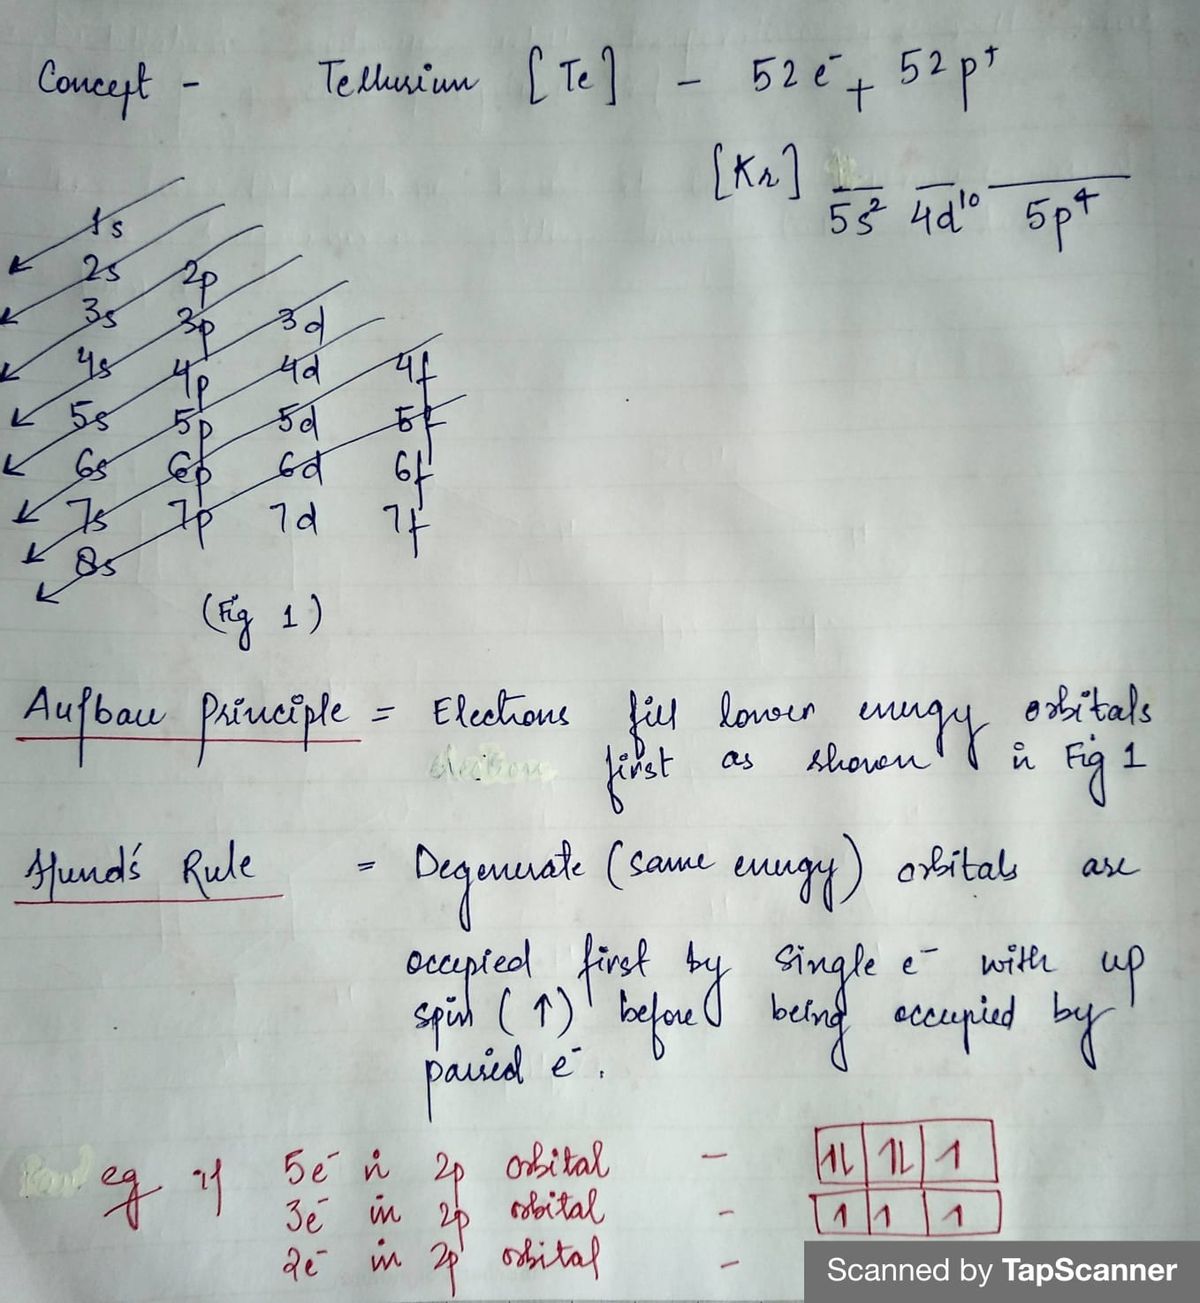 Concept - Tellurium [Te] - 52 e⁻ + 52 p⁺
[Kr] 5s² 4d¹⁰ 5p⁴
1s
2s 2p
3s 3p 3d
4s 4p 4d 4f
5s 5p 5d 5f
6s 6p 6d 6f
7s 7p 7d 7f
8s
(Fig 1)
Aufbau Principle = Electrons fill lower energy orbitals
first as shown in Fig 1
Hund's Rule = Degenerate (same energy) orbitals are
occupied first by single e⁻ with up
spin (↑) before being occupied by
paired e⁻.
eg if 5e⁻ in 2p orbital - 1L 1L 1
3e⁻ in 2p orbital - 1 1 1
2e⁻ in 2p orbital -
Scanned by TapScanner